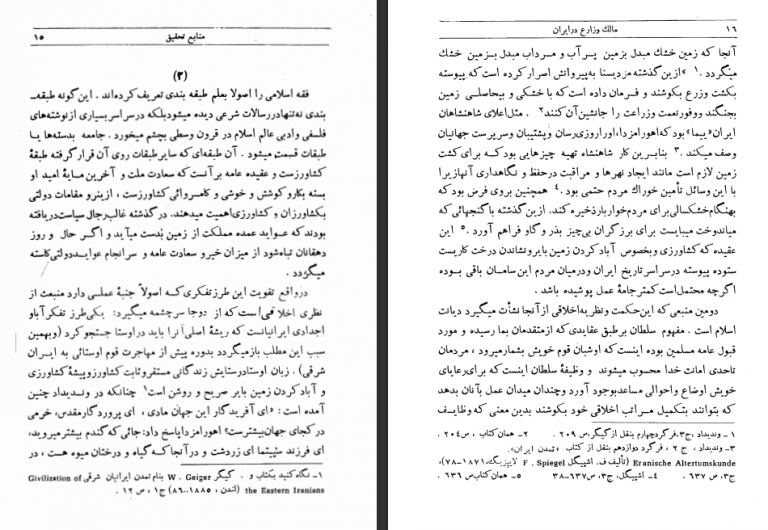 منابع تحقیق
۱۵
(۳)
فقه اسلامی را اصولا بعلم طبقه بندی تعریف کرده‌اند . این گونه طبقه‌ـ
بندی نه‌تنها در رسالات شرعی دیده میشود بلکه در سراسر بسیاری از نوشته‌های
فلسفی و ادبی عالم اسلام در قرون وسطی بچشم میخورد . جامعه بدسته‌ها یا
طبقات قسمت میشود . آن طبقه‌ای که سایر طبقات روی آن قرار گرفته طبقهٔ
کشاورزست و عقیده عامه بر آنست که سعادت ملت و آخرین مایهٔ امید او
بسته بکار و کوشش و خوشی و کامروائی کشاورزست ، ازینرو مقامات دولتی
بکشاورزان و کشاورزی اهمیت میدهند . در گذشته غالب رجال سیاست دریافته
بودند که عواید عمده مملکت از زمین بدست میآید و اگر حال و روز
دهقانان تباه شود از میزان خیر و سعادت عامه و سرانجام عواید دولتی کاسته
میگردد .
در واقع تقویت این طرز فکری که اصولاً جنبهٔ عملی دارد منبعث از
نظری اخلاقی است که از دو جا سرچشمه میگیرد: یکی طرز تفکر آباو
اجدادی ایرانیانست که ریشهٔ اصلی آنرا باید در اوستا جستجو کرد (و بهمین
سبب این مطلب بازمیگردد بدوره پیش از مهاجرت قوم اوستائی به ایران
شرقی) . زبان اوستا در ستایش زندگانی مستقر و ثابت کشاورز و پیشهٔ کشاورزی
و آباد کردن زمین بایر صریح و روشن است۱ چنانکه در وندیداد چنین
آمده است : «ای آفریدگار این جهان مادی ، ای پروردگار مقدس، خرمی
در کجای جهان بیشترست؟ اهورامزدا پاسخ داد: جائی که گندم بیشتر میروید،
ای فرزند سپیتما ای زردشت و در آنجا که گیاه و درختان میوه هست ، در
۱ ـ نگاه کنید بکتاب و . گیگر W . Geiger بنام تمدن ایرانیان شرقی Civilization of
the Eastern Iranians (لندن ، ۱۸۸۵..۸۶) ج۱ ، ص ۱۲ .
۱۶
مالک و زارع در ایران
آنجا که زمین خشك مبدل بزمین پر آب و مرداب مبدل بزمین خشك
میگردد .۱ » از این گذشته مزدیسنا به پیروانش اصرار کرده است که پیوسته
بکشت و زرع بکوشند و فرمان داده است که با خشکی و بیحاصلی زمین
بجنگند و وفور نعمت و زراعت را جانشین آن کنند۲ . مثل اعلای شاهنشاهان
ایران «ییما» بود که اهورامزدا، او را روزی‌رسان و پشتیبان و سرپرست جهانیان
وصف میکند .۳ بنابرین کار شاهنشاه تهیه چیزهایی بود که برای کشت
زمین لازم است مانند ایجاد نهرها و مراقبت در حفظ و نگاهداری آنها زیرا
با این وسائل تأمین خوراك مردم حتمی بود .۴ همچنین بروی فرض بود که
بهنگام خشکسالی برای مردم خواربار ذخیره کند. از این گذشته با گنجهائی که
میاندوخت میبایست برای برزگران بی‌چیز بذر و گاو فراهم آورد .۵ این
عقیده که کشاورزی و بخصوص آباد کردن زمین بایر و نشاندن درخت کاریست
ستوده پیوسته در سراسر تاریخ ایران و در میان مردم این سامان باقی بوده
اگرچه محتمل است کمتر جامهٔ عمل پوشیده باشد .
دومین منبعی که این حکمت و نظر به اخلاقی از آنجا نشأت میگیرد دیانت
اسلام است . مفهوم سلطان برطبق عقایدی که از متقدمان بما رسیده و مورد
قبول عامه مسلمین بوده اینست که او شبان قوم خویش بشمار میرود ، مردمان
تاحدی امانت خدا محسوب میشوند و وظیفهٔ سلطان اینست که برای رعایای
خویش اوضاع و احوالی مساعد بوجود آورد و چندان میدان عمل بآنان بدهد
که بتوانند بتکمیل مراتب اخلاقی خود بکوشند بدین معنی که وظایف
۱ ـ وندیداد ، ج۳، فرگرد چهارم بنقل از گیگر، ص ۲۰۹ . ۲ ـ همان کتاب ، ص۲۰۴ .
۳ ـ وندیداد ، ج ۲ ، فرگرد دوازدهم بنقل از کتاب «تمدن ایران».
Eranische Altertumskunde (تألیف ف. اشپیگل F . Spiegel لایپزیگ، ۱۸۷۱-۷۸)،
ج۳، ص ۶۳۷ . ۴ ـ اشپیگل. ج۳، ص۶۳۷-۳۸ ۵ ـ همان کتاب ص ۶۳۶ .